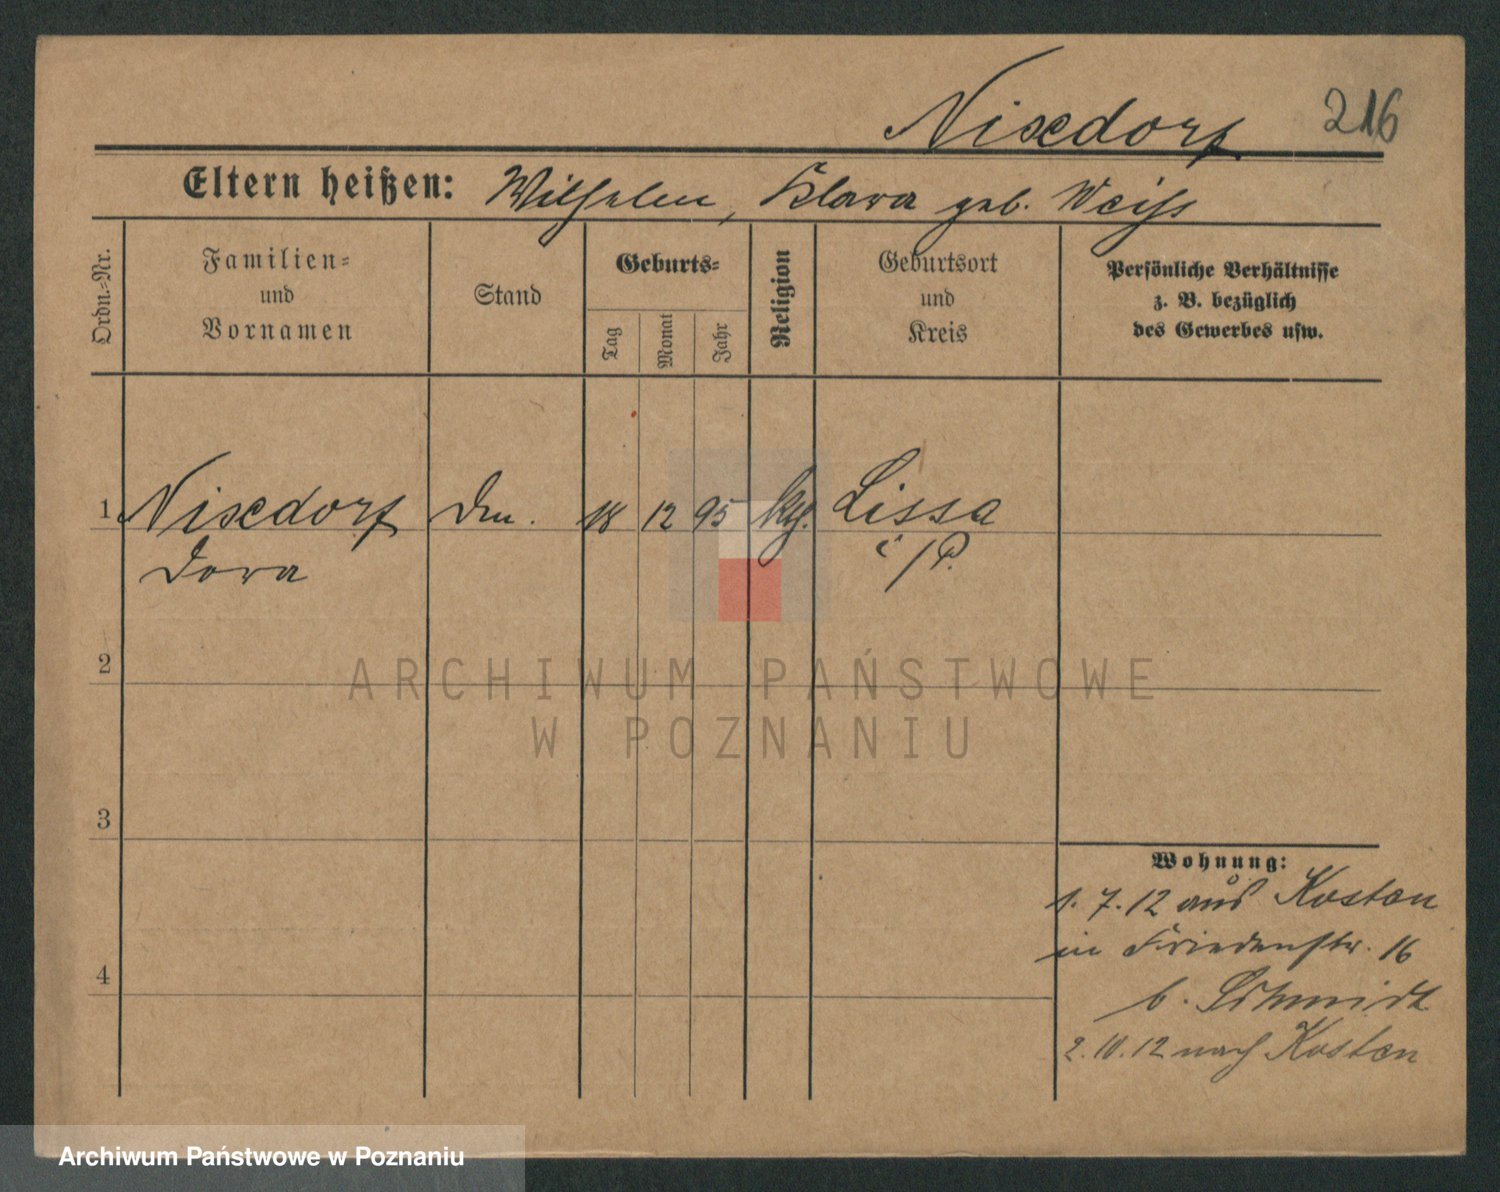 Nixdorf 216
Eltern heißen: Wilhelm, Klara geb. Weiß
Ordn.-Nr.
Familien-
und
Vornamen
Stand
Geburts-
Tag
Monat
Jahr
Religion
Geburtsort
und
Kreis
Persönliche Verhältnisse
z. B. bezüglich
des Gewerbes usw.
1 Nixdorf 18 12 95 Lissa
Dora i/P.
2
3
4
Wohnung:
1.7.12 aus Kosten
in Friedenstr. 16
b. Schmidt
2.10.12 nach Kosten
ARCHIWUM PAŃSTWOWE
W POZNANIU
Archiwum Państwowe w Poznaniu